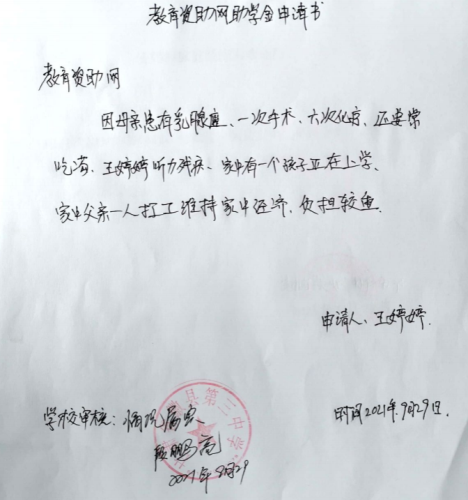 教育资助网助学金申请书
教育资助网
因母亲患有乳腺癌、一次手术、六次化疗、还要常
吃药、王婷婷听力残疾、家中有一个孩子正在上学、
家中父亲一人打工维持家中经济、负担较重.
申请人、王婷婷.
学校审核:情况属实
县第三中学
时间2021年9月29日.
鹏高
2021年9月29